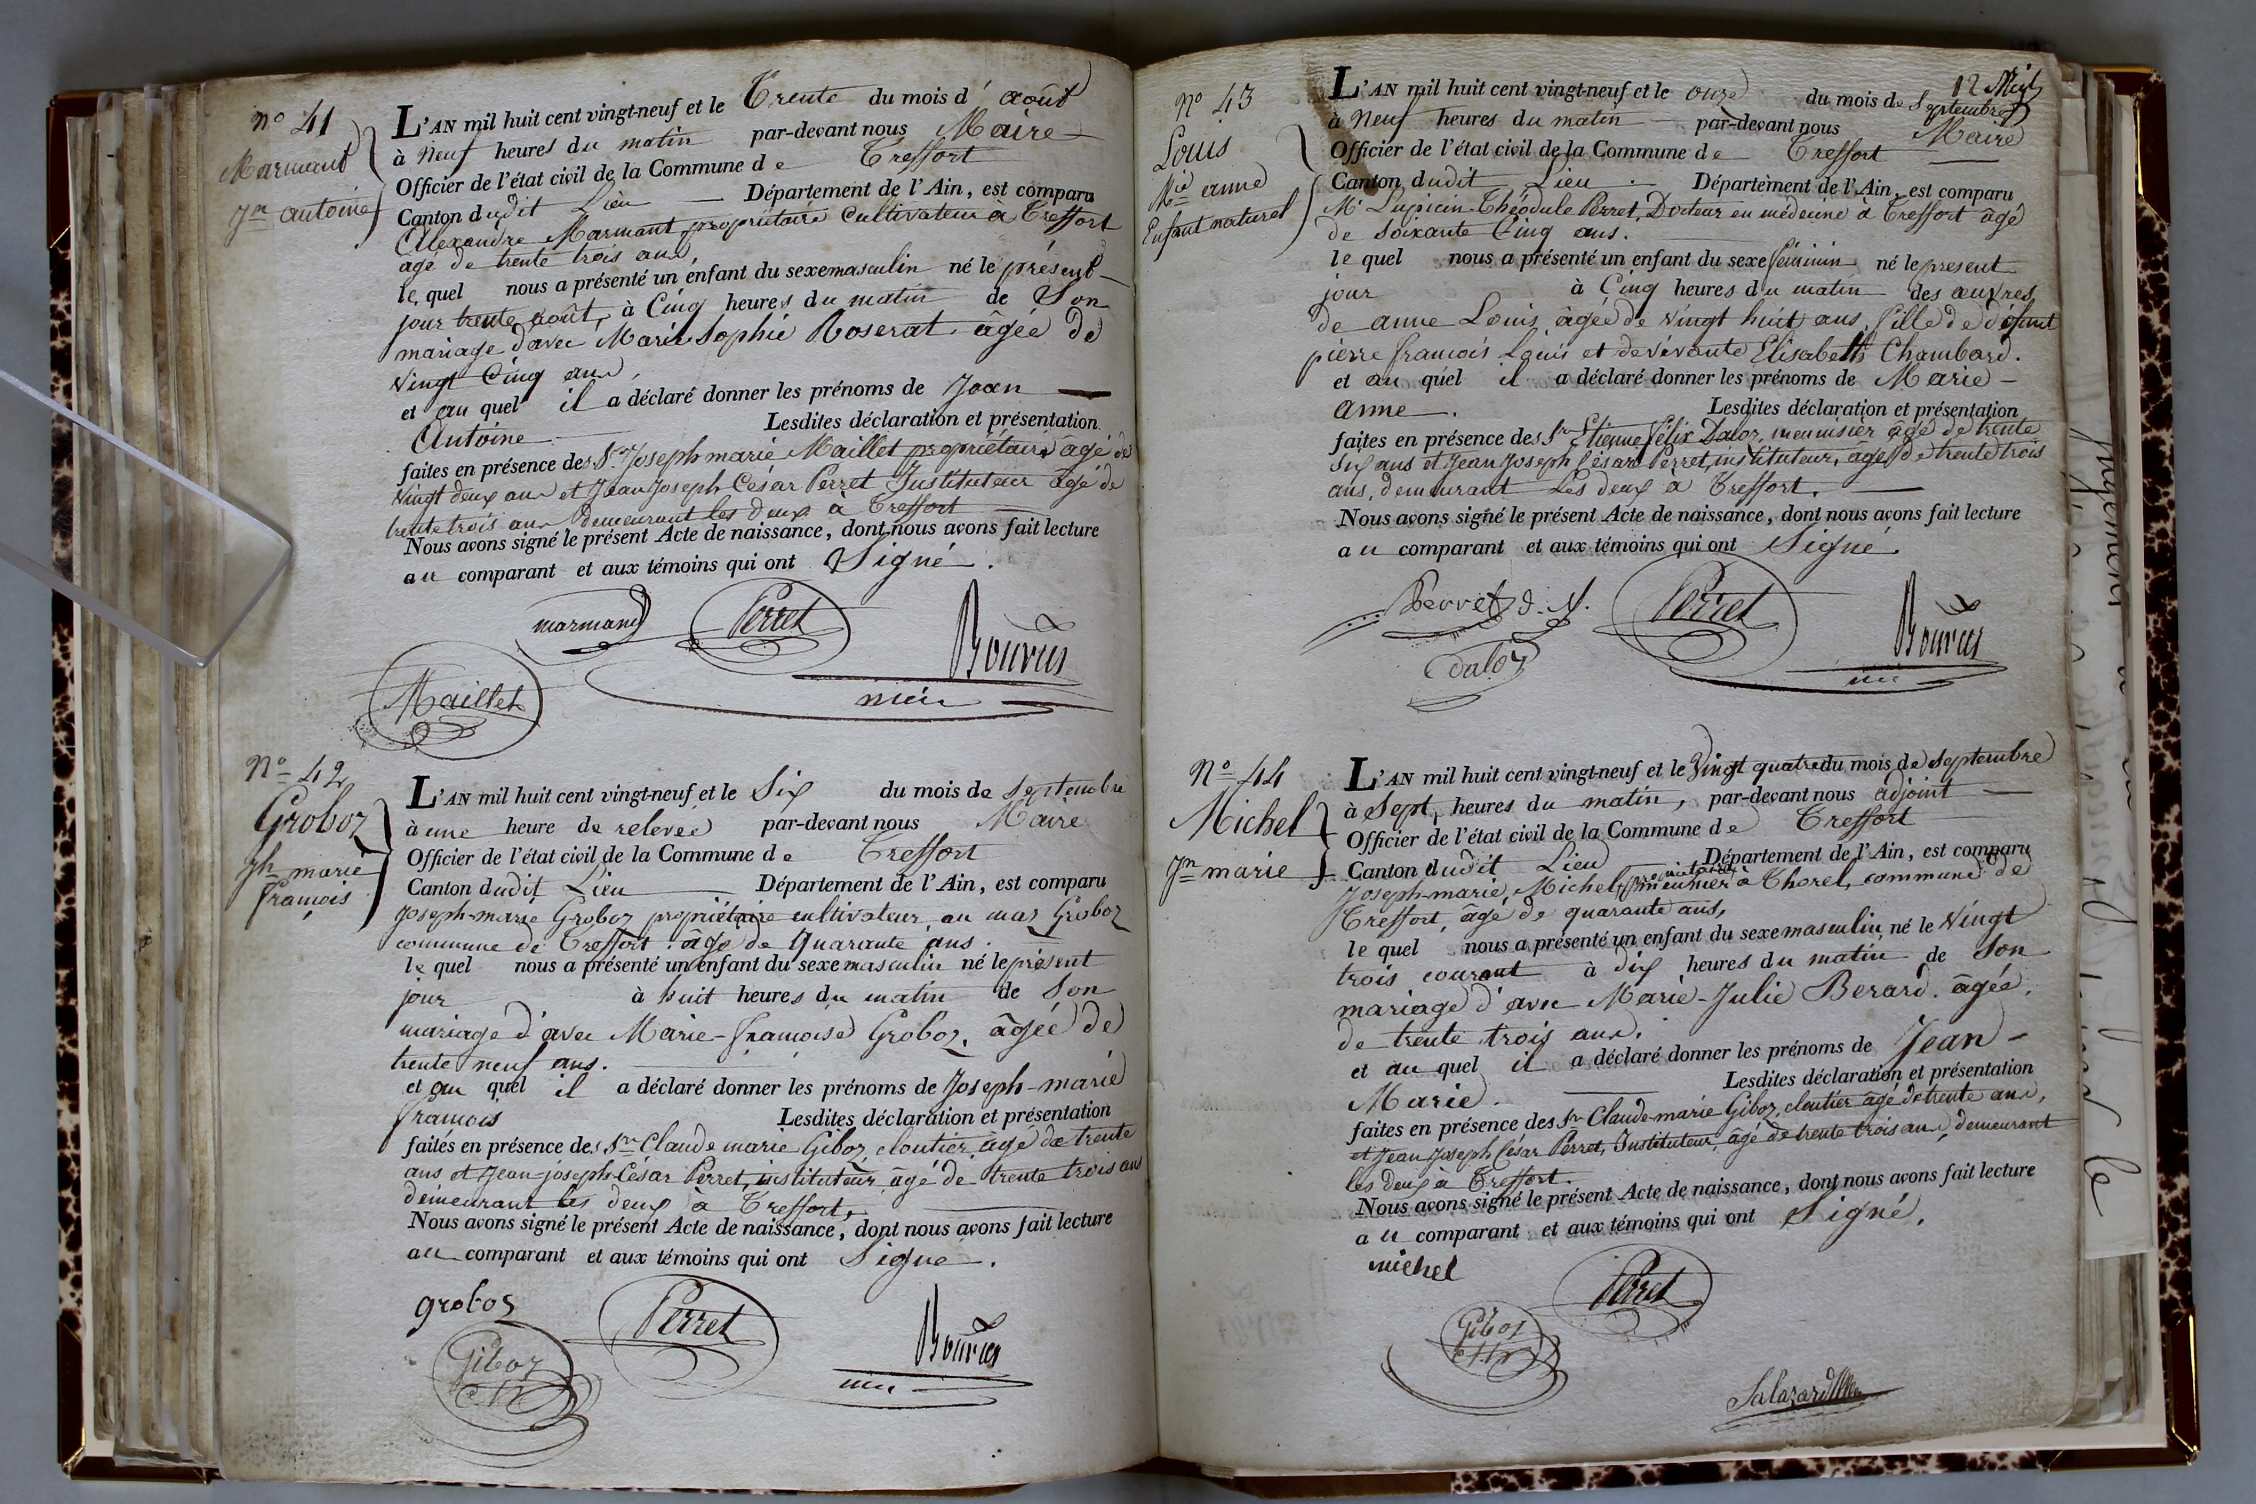 N° 41
Marmant
Jn antoine
L'AN mil huit cent vingt-neuf et le Trente du mois d' août
à Neuf heures du matin par-devant nous Maire
Officier de l'état civil de la Commune de Treffort
Canton dudit Lieu Département de l'Ain, est comparu
Alexandre Marmant propriétaire Cultivateur à Treffort
âgé de trente trois ans,
lequel nous a présenté un enfant du sexe masculin né le présent
jour trente août, à Cinq heures du matin de Son
mariage d'avec Marie Sophie Roserat, âgée de
Vingt Cinq ans,
et au quel il a déclaré donner les prénoms de Jean
Antoine Lesdites déclaration et présentation
faites en présence des Srs Joseph marie Maillet propriétaire âgé de
vingt deux ans et Jean Joseph César Perret Instituteur âgé de
trente trois ans demeurant les deux à Treffort
Nous avons signé le présent Acte de naissance, dont nous avons fait lecture
au comparant et aux témoins qui ont Signé.
marmand Perret Bouvus
Maillet
N° 42
Groboz
Jh marie
françois
L'AN mil huit cent vingt-neuf et le Six du mois de Septembre
à une heure de relevée par-devant nous Maire
Officier de l'état civil de la Commune de Treffort
Canton dudit Lieu Département de l'Ain, est comparu
Joseph-marie Groboz propriétaire cultivateur au maz Groboz
commune de Treffort, âgé de Quarante ans.
le quel nous a présenté un enfant du sexe masculin né le présent
jour à huit heures du matin de Son
mariage d'avec Marie-françoise Groboz, âgée de
trente neuf ans.
et au quel il a déclaré donner les prénoms de Joseph-marie
françois Lesdites déclaration et présentation
faites en présence des Srs Claude marie Giboz, cloutier, âgé de trente
ans et Jean-joseph-César Perret, instituteur, âgé de trente trois ans
demeurant les deux à Treffort,
Nous avons signé le présent Acte de naissance, dont nous avons fait lecture
au comparant et aux témoins qui ont Signé.
groboz Perret Bouvus
Giboz
N° 43
Louis
Mie anne
Enfant naturel
L'AN mil huit cent vingt-neuf et le onze du mois de Septembre
à Neuf heures du matin par-devant nous Maire
Officier de l'état civil de la Commune de Treffort
Canton dudit Lieu Département de l'Ain, est comparu
Mr Lupicin-Théodule Perret, Docteur en médecine à Treffort âgé
de soixante Cinq ans.
le quel nous a présenté un enfant du sexe féminin né le present
jour à Cinq heures du matin des œuvres
de anne Louis, âgée de vingt huit ans, fille de défunt
pierre françois Louis et de vivante Elisabeth Chambard.
et au quel il a déclaré donner les prénoms de Marie-
anne. Lesdites déclaration et présentation
faites en présence des Srs Etienne Félix Daloz, menuisier âgé de trente
six ans et Jean Joseph César Perret, instituteur, âgé de trente trois
ans, demeurant les deux à Treffort.
Nous avons signé le présent Acte de naissance, dont nous avons fait lecture
au comparant et aux témoins qui ont Signé.
Perret d. m. Perret Bouvus
daloz
N° 44
Michel
Jn marie
L'AN mil huit cent vingt-neuf et le Vingt quatre du mois de Septembre
à Sept, heures du matin, par-devant nous adjoint
Officier de l'état civil de la Commune de Treffort
Canton dudit Lieu Département de l'Ain, est comparu
Joseph-marie Michel, propriétaire meunier à Thorel, commune de
Treffort, âgé de quarante ans,
le quel nous a présenté un enfant du sexe masculin, né le Vingt
trois courant à dix heures du matin de Son
mariage d'avec Marie-Julie Berard, âgée,
de trente trois ans.
et au quel il a déclaré donner les prénoms de Jean-
Marie. Lesdites déclaration et présentation
faites en présence des Srs Claude-marie Giboz, cloutier âgé de trente ans,
et Jean Joseph César Perret, Instituteur, âgé de trente trois ans, demeurant
les deux à Treffort.
Nous avons signé le présent Acte de naissance, dont nous avons fait lecture
au comparant et aux témoins qui ont Signé.
michel
Perret
Giboz